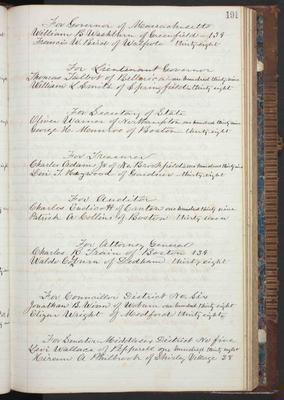 191
For Governor of Massachusetts
William B Washburn of Greenfield - 139
Francis W. Bird of Walpole thirty eight
For Lieutenant Governor
Thomas Talbot of Billerica one hundred thirty nine
William L Smith of Springfield thirty eight
For Secretary of State
Oliver Warner of Northampton one hundred thirty nine
George H. Monroe of Boston thirty eight
For Treasurer
Charles Adams Jr of No Brookfield one hundred thirty nine
Levi Heywood of Gardner - thirty eight
For Auditor
Charles Endicott of Canton one hundred thirty nine
Patrick A Collins of Boston thirty
For Attorney General
Charles R Train of Boston 139
Waldo Colburn of Dedham thirty eight
For Councillor District No. Six
Jonathan B Winn of Woburn one hundred thirty eight
Elizur Wright of Medford thirty eight
For Senator Middlesex District No five
Levi Wallace of Pepperell one hundred thirty eight
Hiram A Philbrook of Shirley Village 38